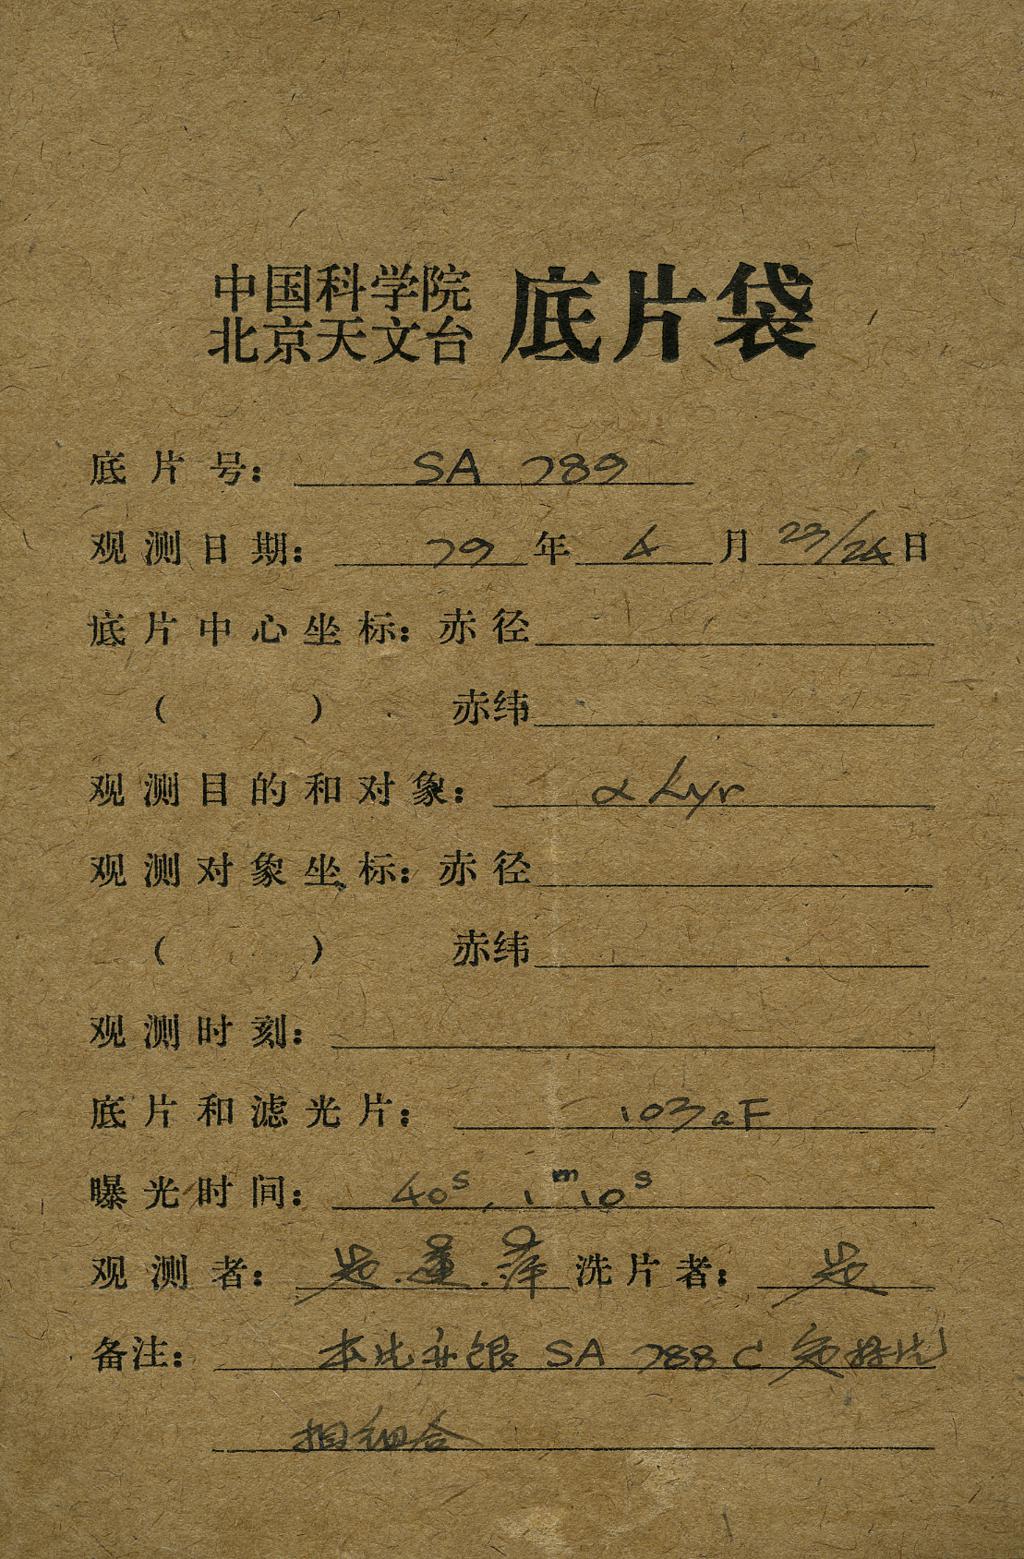 中国科学院
北京天文台 底片袋
底片号： SA 789
观测日期： 79 年 4 月 23/24 日
底片中心坐标：赤径
（ ） 赤纬
观测目的和对象： α Lyr
观测对象坐标：赤径
（ ） 赤纬
观测时刻：
底片和滤光片： 103aF
曝光时间： 40s, 1m10s
观测者： 洗片者：
备注： 本片 SA 788C
相组合